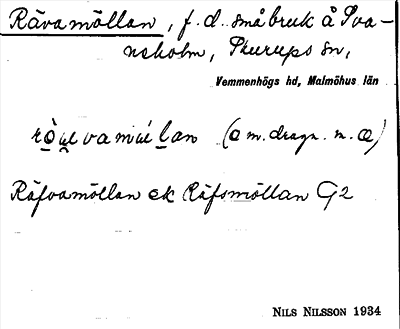 Rävamöllan, f. d. småbruk å Sva-
nsholm, Skurups sn,
Vemmenhögs hd, Malmöhus län
(a m. dragn. n. æ)
Räfvamöllan ek Räfsmöllan G2
NILS NILSSON 1934